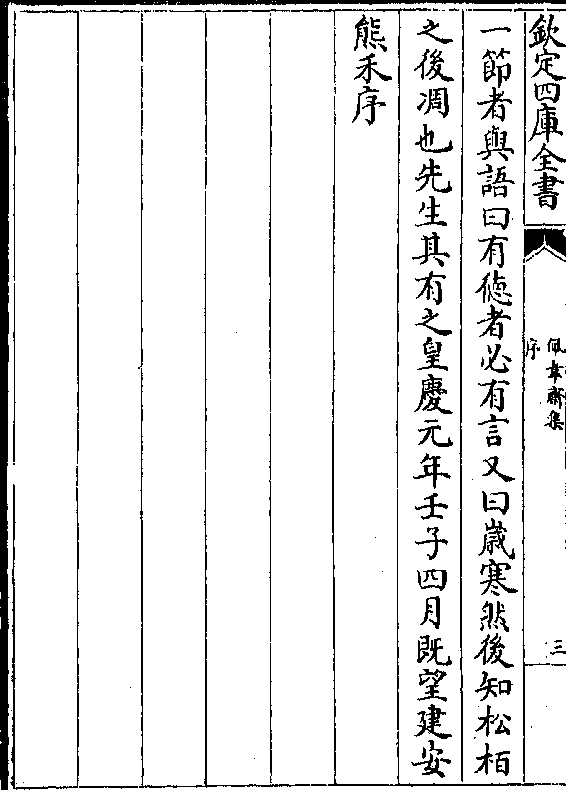 欽定四庫全書
佩韋齋集
序
三
一節者與語曰有徳者必有言又曰歳寒然後知松栢
之後凋也先生其有之皇慶元年壬子四月既望建安
熊禾序